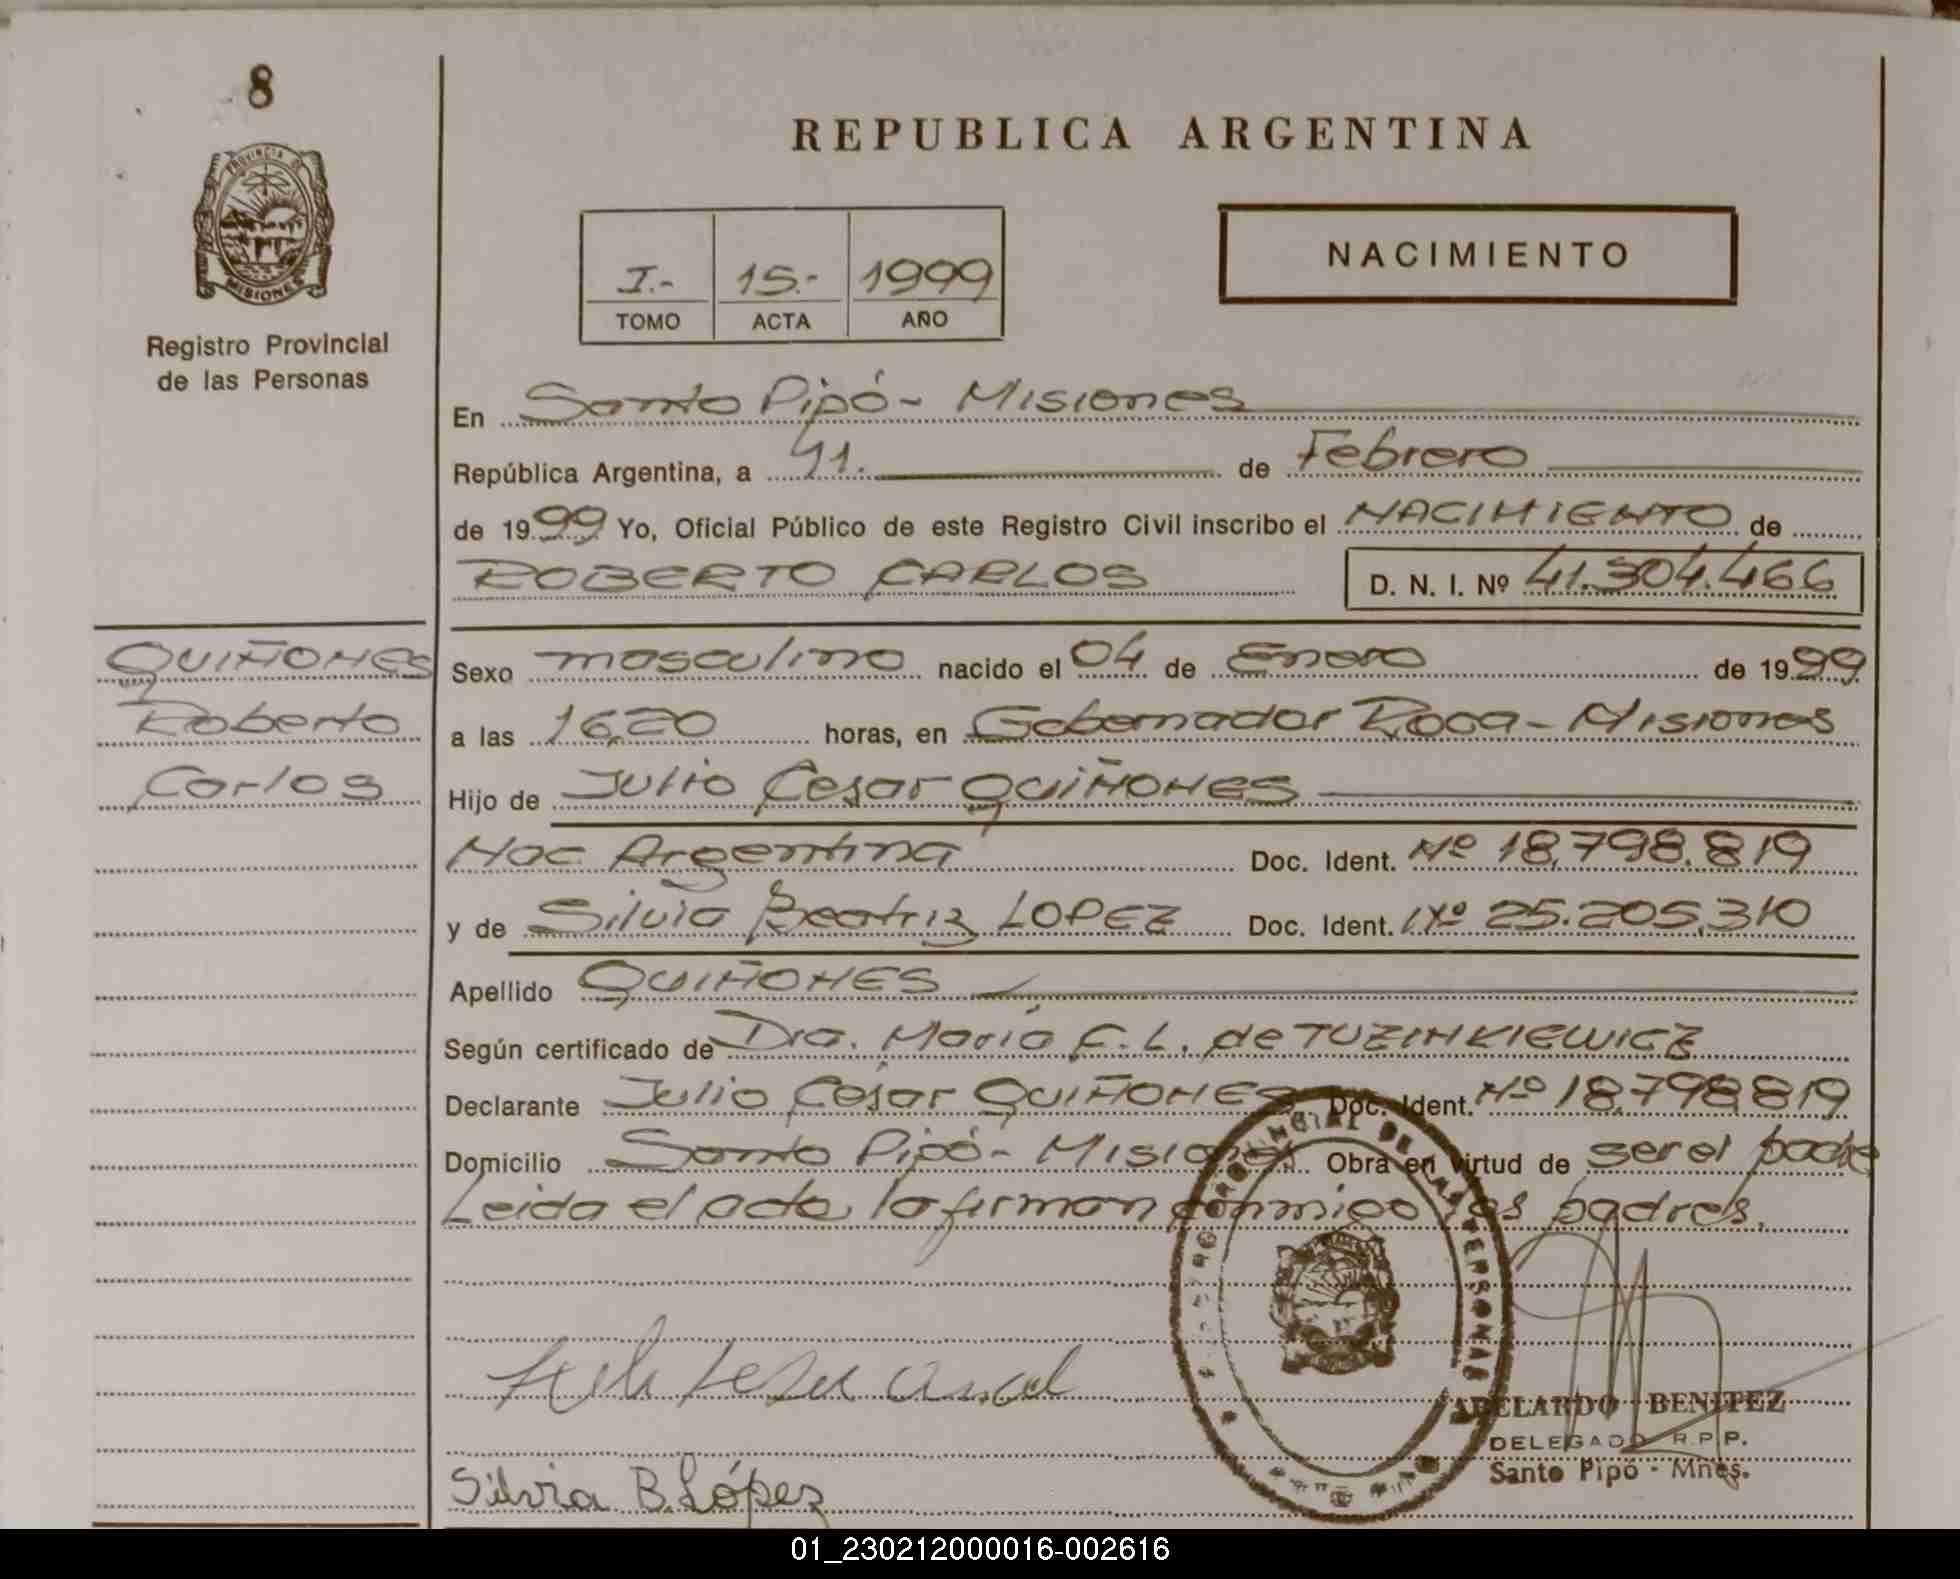 8
REPUBLICA ARGENTINA
PROVINCIA DE
MISIONES
NACIMIENTO
I.- 15.- 1999
TOMO ACTA AÑO
Registro Provincial
de las Personas
En Santo Pipó - Misiones
República Argentina, a 11. de Febrero
de 1999 Yo, Oficial Público de este Registro Civil inscribo el NACIMIENTO de
ROBERTO CARLOS D. N. I. Nº 41.304.466
QUIÑONES
Roberto
Carlos
Sexo masculino nacido el 04 de Enero de 1999
a las 16,20 horas, en Gobernador Roca - Misiones
Hijo de Julio Cesar QUIÑONES
Nac. Argentina Doc. Ident. Nº 18.798.819
y de Silvia Beatriz LOPEZ Doc. Ident. Nº 25.205.310
Apellido QUIÑONES
Según certificado de Dra. María F. L. de TUZINKIEWICZ
Declarante Julio César QUIÑONES Doc. Ident. Nº 18.798.819
Domicilio Santo Pipó - Misiones Obra en virtud de ser el padre
Leida el acta la firman conmigo los padres.
PROVINCIAL DE LAS PERSONAS
ABELARDO BENITEZ
DELEGADO R.P.P.
Santo Pipó - Mnes.
Silvia B. López
01_230212000016-002616